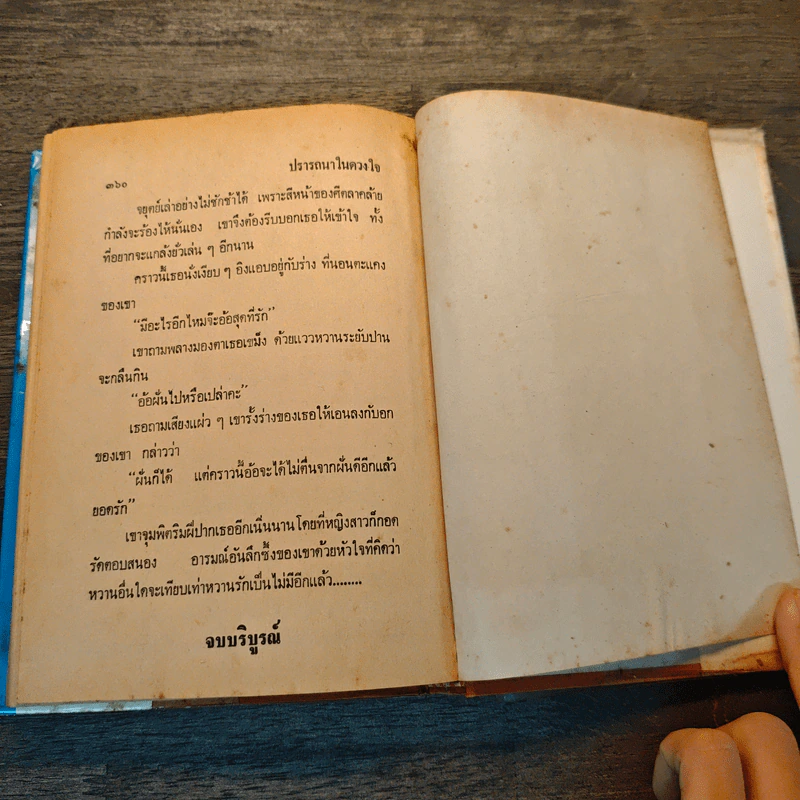 ปรารถนาในดวงใจ
๓๖๐
จยุตย์เล่าอย่างไม่ชักช้าได้ เพราะสีหน้าของศีตลาคล้าย
กำลังจะร้องไห้นั่นเอง เขาจึงต้องรีบบอกเธอให้เข้าใจ ทั้ง
ที่อยากจะแกล้งยั่วเล่น ๆ อีกนาน
คราวนี้เธอนั่งเงียบ ๆ อิงแอบอยู่กับร่าง ที่นอนตะแคง
ของเขา
“มีอะไรอีกไหมจ๊ะอ้อสุดที่รัก”
เขาถามพลางมองตาเธอเขม็ง ด้วยแววหวานระยับปาน
จะกลืนกิน
“อ้อฝันไปหรือเปล่าคะ”
เธอถามเสียงแผ่ว ๆ เขารั้งร่างของเธอให้เอนลงกับอก
ของเขา กล่าวว่า
“ฝันก็ได้ แต่คราวนี้อ้อจะได้ไม่ตื่นจากฝันดีอีกแล้ว
ยอดรัก”
เขาจุมพิตริมฝีปากเธออีกเนิ่นนาน โดยที่หญิงสาวก็กอด
รัดตอบสนอง อารมณ์อันลึกซึ้งของเขาด้วยหัวใจที่คิดว่า
หวานอื่นใดจะเทียบเท่าหวานรักเป็นไม่มีอีกแล้ว........
จบบริบูรณ์